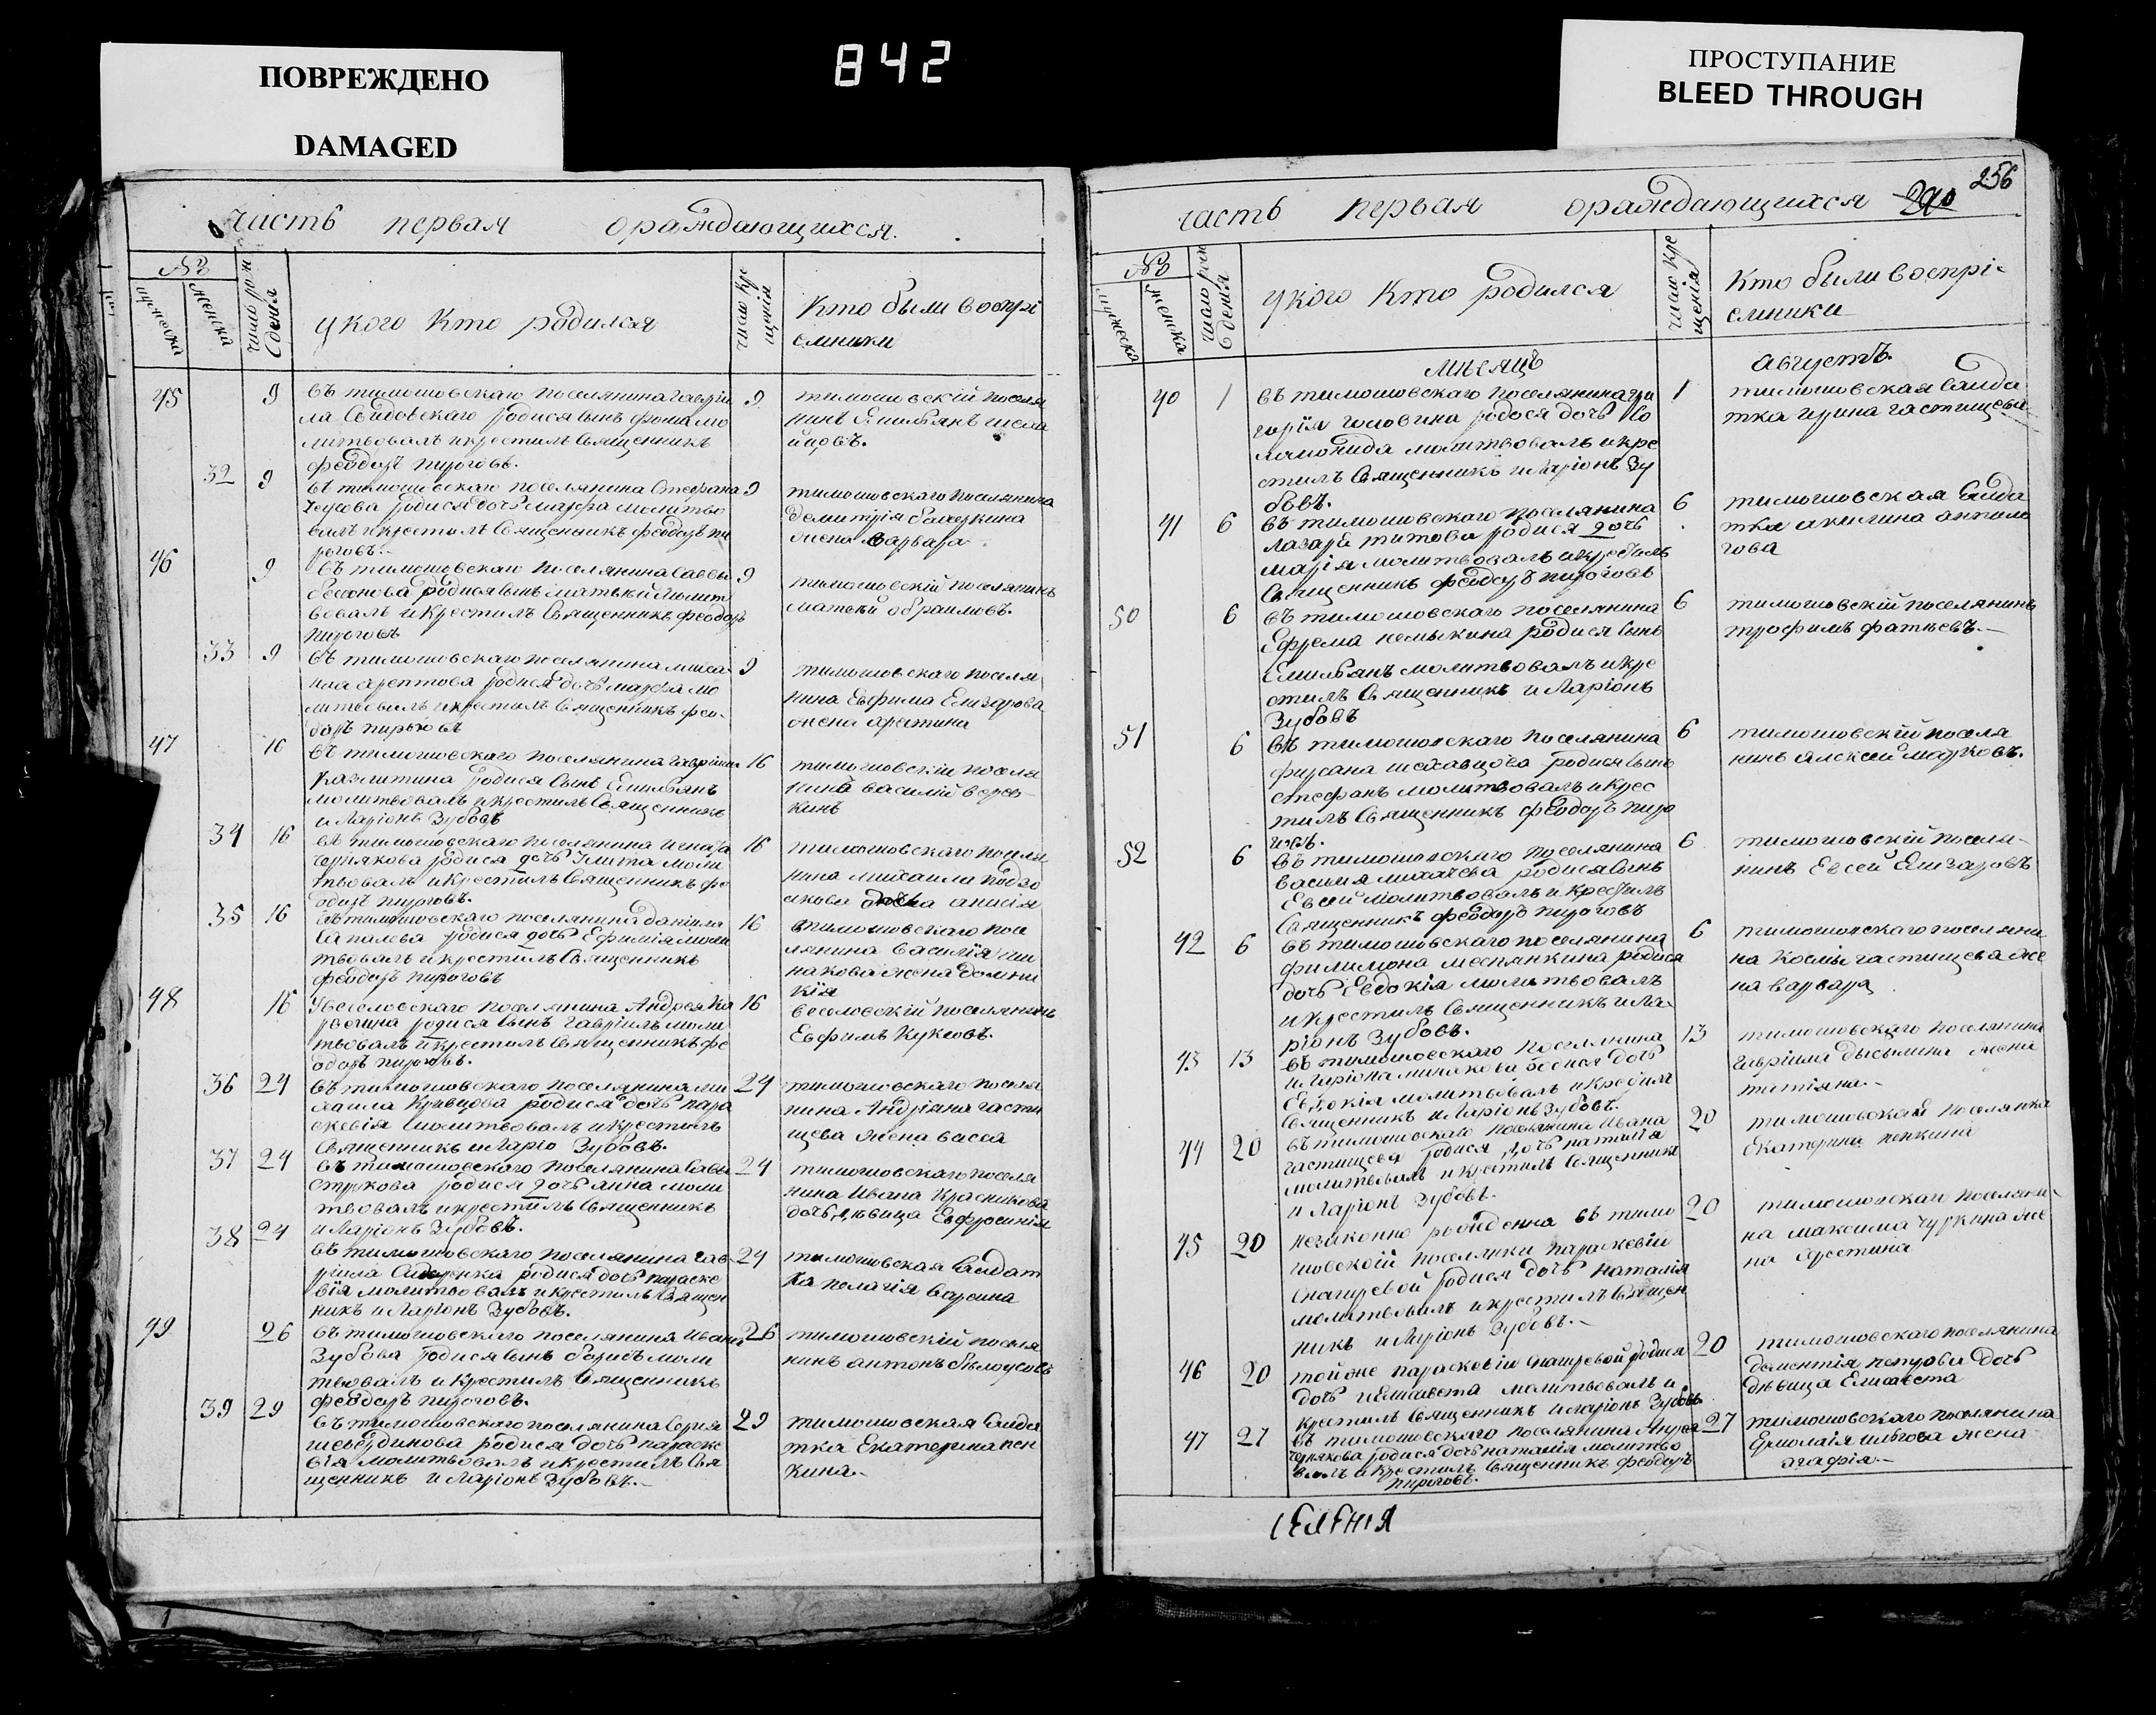 ПОВРЕЖДЕНО
DAMAGED
842
ПРОСТУПАНИЕ
BLEED THROUGH
часть первая ораждающихся.
№
мужеска
женска
число рож
денія
укого кто родился
число кре
щенія
Кто были воспрі
емники
45 9 въ тимошовскаго поселянина гаврі
ла родися сынъ мо
литвовалъ и крестилъ священникъ
феодоръ пироговъ.
9 тимошовскій поселя
нинъ Емильянъ
32 9 въ тимошовскаго поселянина Стефана
родися дочь марфа молитво
валъ и крестилъ священникъ феодоръ пи
роговъ.
9 тимошовскаго поселянина
димитрія
жена варвара
46 9 въ тимошовскаго поселянина саввы
бессонова родися сынъ матвей молит
вовалъ и крестилъ священникъ феодоръ
пироговъ
9 тимошовскій поселянинъ
матвей абраимовъ.
33 9 въ тимошовскаго поселянина михаи
ила родися дочь марфа мо
литвовалъ и крестилъ священникъ фео-
доръ пироговъ
9 тимошовскаго поселя
нина Евфима Елизарова
жена христина
47 16 въ тимошовскаго поселянина гаврiила
родися сынъ Емильянъ
молитвовалъ и крестилъ священникъ
иларіонъ Зубовъ
16 тимошовскій поселя
нинъ василій верев-
кинъ
34 16 въ тимошовскаго поселянина игната
чернякова родися дочь Улита моли
твовалъ и крестилъ священникъ фе
одоръ пироговъ.
16 тимошовскаго поселя
нина михаила
анисія
35 16 въ тимошовскаго поселянина даніила
сапалева родися дочь Ефимія моли
твовалъ и крестилъ священникъ
феодоръ пироговъ
16 тимошовскаго посе
лянина василія ми
накова жена домни
кія
48 16 Увеселовскаго поселянина Андрея ка
родися сынъ гавріилъ моли
твовалъ и крестилъ священникъ фе
одоръ пироговъ.
16 веселовскій поселянинъ
Евфимъ Куксовъ.
36 24 въ тимошовскаго поселянина ми
хаила Кривцова родися дочь пара
скевія молитвовалъ и крестилъ
священникъ иларіо Зубовъ.
24 тимошовскаго поселя
нина Андріяна части
щева жена васса
37 24 въ тимошовскаго поселянина савы
струкова родися дочь анна моли
твовалъ и крестилъ священникъ
иларіонъ Зубовъ.
24 тимошовскаго поселя
нина Ивана Красникова
дочь дѣвица Евфросинія
38 24 въ тимошовскаго поселянина гав
ріила родися дочь параске
вія молитвовалъ и крестилъ священ
никъ иларіонъ Зубовъ.
24 тимошовская салдат
ка пелагія
49 26 въ тимошовскаго поселянина Ивана
Зубова родися сынъ борисъ моли
твовалъ и крестилъ священникъ
феодоръ пироговъ.
26 тимошовскій поселя
нинъ антонъ бѣлоусовъ
39 29 въ тимошовскаго поселянина сергія
шевердинова родися дочь параске
вія молитвовалъ и крестилъ свя
щенникъ иларіонъ Зубовъ.
29 тимошовская салда
тка Екатерина пен
кина
часть первая ораждающихся 290 256
№
мужеска
женска
число рож
денія
укого кто родился
число кре
щенія
Кто были воспрі-
емники
мѣсяцъ августъ.
40 1 въ тимошовскаго поселянина гри
горія головина родися дочь Со
ломонида молитвовалъ и кре
стилъ священникъ иларіонъ Зу
бовъ.
1 тимошовская салда
тка ирина частищева
41 6 въ тимошовскаго поселянина
лазаря титова родися дочь
марія молитвовалъ и крестилъ
священникъ феодоръ пироговъ
6 тимошовская салда
тка акилина
50 6 въ тимошовскаго поселянина
Ефрема немыкина родися сынъ
Емильянъ молитвовалъ и кре
стилъ священникъ иларіонъ
Зубовъ
6 тимошовскій поселянинъ
трофимъ фатѣевъ.
51 6 въ тимошовскаго поселянина
фирсана шехавцова родися сынъ
стефанъ молитвовалъ и крес
тилъ священникъ феодоръ пиро
говъ.
6 тимошовскій поселя
нинъ алексѣй марковъ.
52 6 въ тимошовскаго поселянина
василя михачева родися сынъ
Евсей молитвовалъ и крестилъ
священникъ феодоръ пироговъ
6 тимошовскій поселя-
нинъ Евсей Елизаровъ
42 6 въ тимошовскаго поселянина
филимона родися
дочь Евдокія молитвовалъ
и крестилъ священникъ ила-
ріонъ Зубовъ.
6 тимошовскаго поселяни
на Космы частищева же
на варвара
43 13 въ тимошовскаго поселянина
иларіона минакова родися дочь
Евдокія молитвовалъ и крестилъ
священникъ иларіонъ Зубовъ.
13 тимошовскаго поселянина
гавріила жена
татіяна.
44 20 въ тимошовскаго поселянина Ивана
частищева родися дочь наталія
молитвовалъ и крестилъ священникъ
иларіонъ Зубовъ.
20 тимошовская поселянка
Екатерина пенкина
45 20 незаконно рожденна въ тимо
шовской поселянки параскевіи
снагиревой родися дочь наталія
молитвовалъ и крестилъ священ
никъ иларіонъ Зубовъ.
20 тимошовскаго поселяни-
на максима чуркина же
на христина
46 20 тойже параскевіи снагиревой родися
дочь иелисавета молитвовалъ и
крестилъ священникъ иларіонъ Зубовъ.
20 тимошовскаго поселянина
дементія петрова дочь
дѣвица Елисавета
47 27 въ тимошовскаго поселянина Андрея
чернякова родися дочь наталія молитво
валъ и крестилъ священникъ феодоръ
пироговъ.
27 тимошовскаго поселянина
Ермолаія ильгова жена
агафія.
селенія